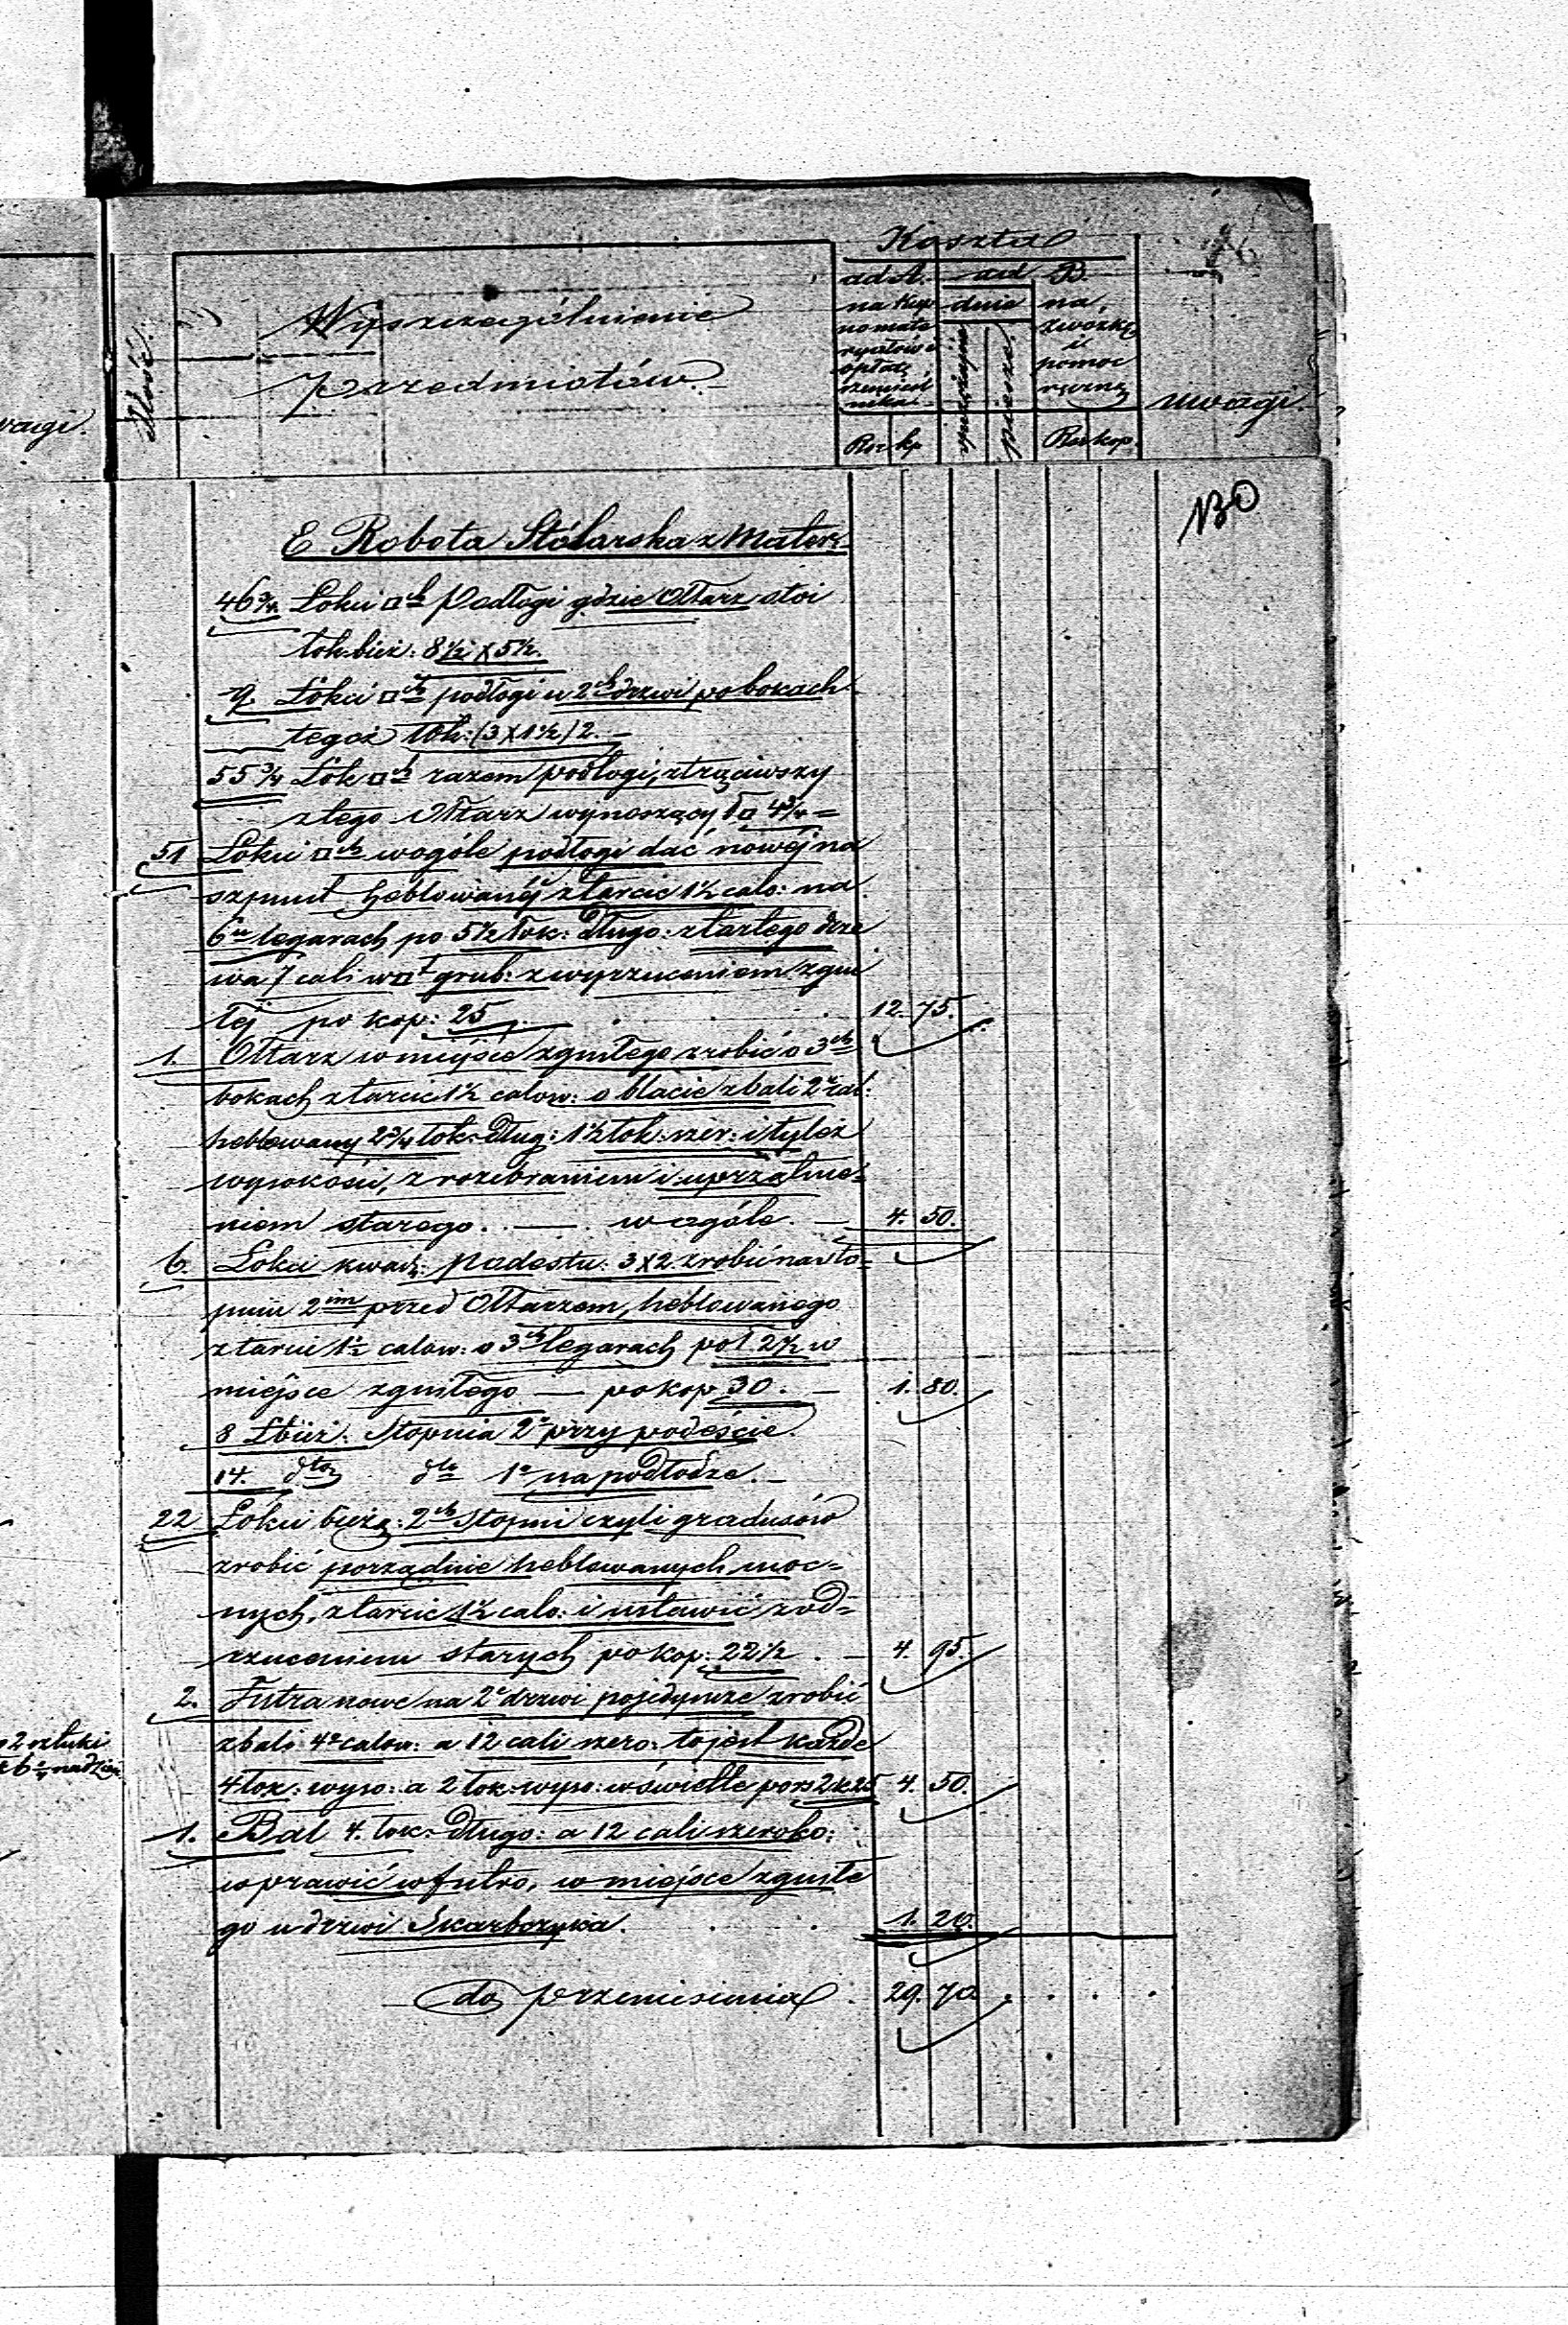 Koszta
Ilość.
Wyszczególnienie
przedmiotów.
ad A. na kup no mate ryałów i opłatę rzemieśl nika
Rsr kp
ad B.
dnie
piesze
na zwózkę i pomoc ręczną
Rsr kop.
uwagi.
E Robota Stólarska z Mater:
46¾ Łokci □ch Podłogi gdzie Ołtarz stoi
łok. bież: 8½ x 5½.
9. Łokci □ch podłogi u 2ch drzwi po bokach
tegoż łok: (3 x 1½) 2. –
55¾ Łok □ch razem podłogi, strąciwszy
z tego Ołtarz wynoszący ł □ 4¾ =
51 Łokci □ch wogóle podłogi dać nowej na
szpunt heblowanéj z tarcic 1½ calo: na
6u legarach po 5½ łok: długo: z tartego drze
wa 7 cali w □t grub: z wyrzuceniem zgni
łej po kop: 25. 12. 75.
1. Ołtarz w miejsce zgniłego zrobić o 3ch
bokach z tarcic 1½ calow: o blacie z bali 2u cal:
heblowany 2¾ łok. dług: 1½ łok: szer: i tyleż
wysokości, z rozebraniem i uprzątnie=
niem starego. — wogóle. – 4. 50.
6. Łokci kwadr: Podestu: 3 x 2 zrobić na sto=
pniu 2im przed Ołtarzem, heblowanego
z tarcic 1½ calow: o 3ch legarach po ł 2½ w
miejsce zgniłego — po kop 30. – 1. 80.
8 Ł bież: Stopnia 2o przy podeście.
14. dto dto 1o na podłodze. –
22 Łokci bieżą: 2ch Stopni czyli gradusów
zrobić porządnie heblowanych moc=
nych, z tarcic 1½ calo: i ustawić z od=
rzuceniem starych po kop: 22½. – 4. 95.
2. Futra nowe na 2e drzwi pojedyncze zrobić
z bali 4o calow: a 12 cali szero: to jest każde
4 łok: wyso: a 2 łok: wyso: w świetle po rs 2 k 25 4. 50.
1. Bal 4. łok: długo: a 12 cali szeroko:
wprawić w futro, w miejsce zgniłe
go u drzwi Skarbczyka. 1. 20.
do przeniesienia. 29. 70.
2 sztuki